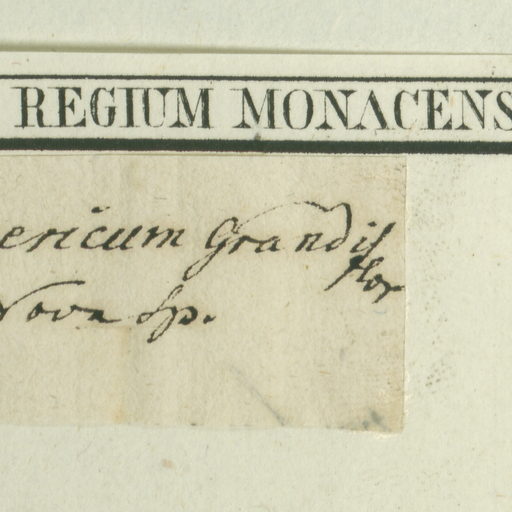 REGIUM MONACENS
ericum Grandif
flor
Nova Sp.